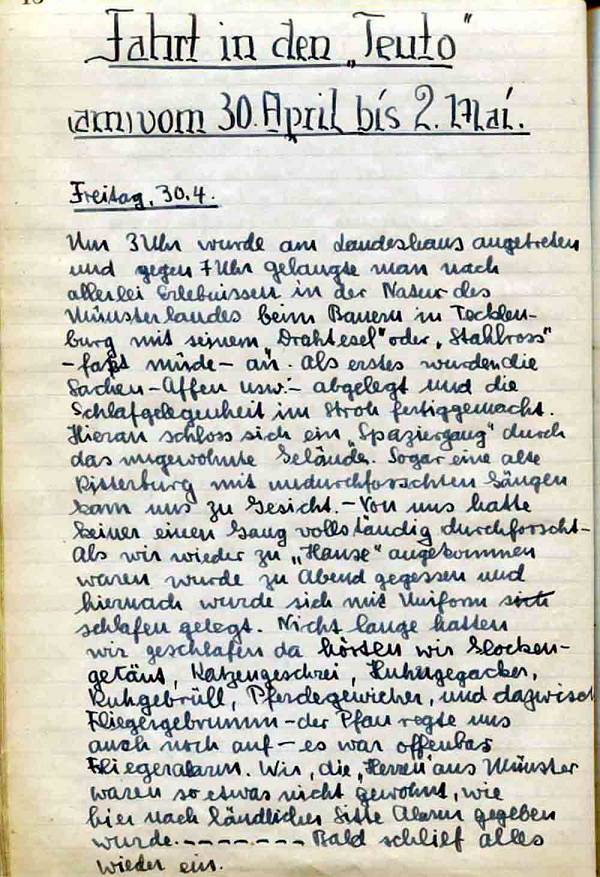 Fahrt in den „Teuto“
(am) vom 30. April bis 2. Mai.
Freitag, 30.4.
Um 3 Uhr wurde am Landeshaus angetreten
und gegen 7 Uhr gelangte man nach
allerlei Erlebnissen in der Natur des
Münsterlandes beim Bauern in Tecklen-
burg mit seinem „Drahtesel“ oder „Stahlross“
- fast müde - an. Als erstes wurden die
Sachen - Affen usw. - abgelegt und die
Schlafgelegenheit im Stroh fertiggemacht.
Hieran schloss sich ein „Spaziergang“ durch
das ungewohnte Gelände. Sogar eine alte
Ritterburg mit undurchforschten Gängen
kam uns zu Gesicht. - Von uns hatte
keiner einen Gang vollständig durchforscht -
Als wir wieder zu „Hause“ angekommen
waren wurde zu Abend gegessen und
hiernach wurde sich mit Uniform sich
schlafen gelegt. Nicht lange hatten
wir geschlafen da hörten wir Glocken-
getäut, Katzengeschrei, Huhngegacker,
Kuhgebrüll, Pferdegewieher, und dazwisch
Fliegergebrumm - der Pfau regte uns
auch noch auf - es war offenbar
Fliegeralarm. Wir, die „Herren“ aus Münster
waren so etwas nicht gewohnt, wie
hier nach ländlicher Sitte Alarm gegeben
wurde. - - - - - - - - Bald schlief alles
wieder ein.